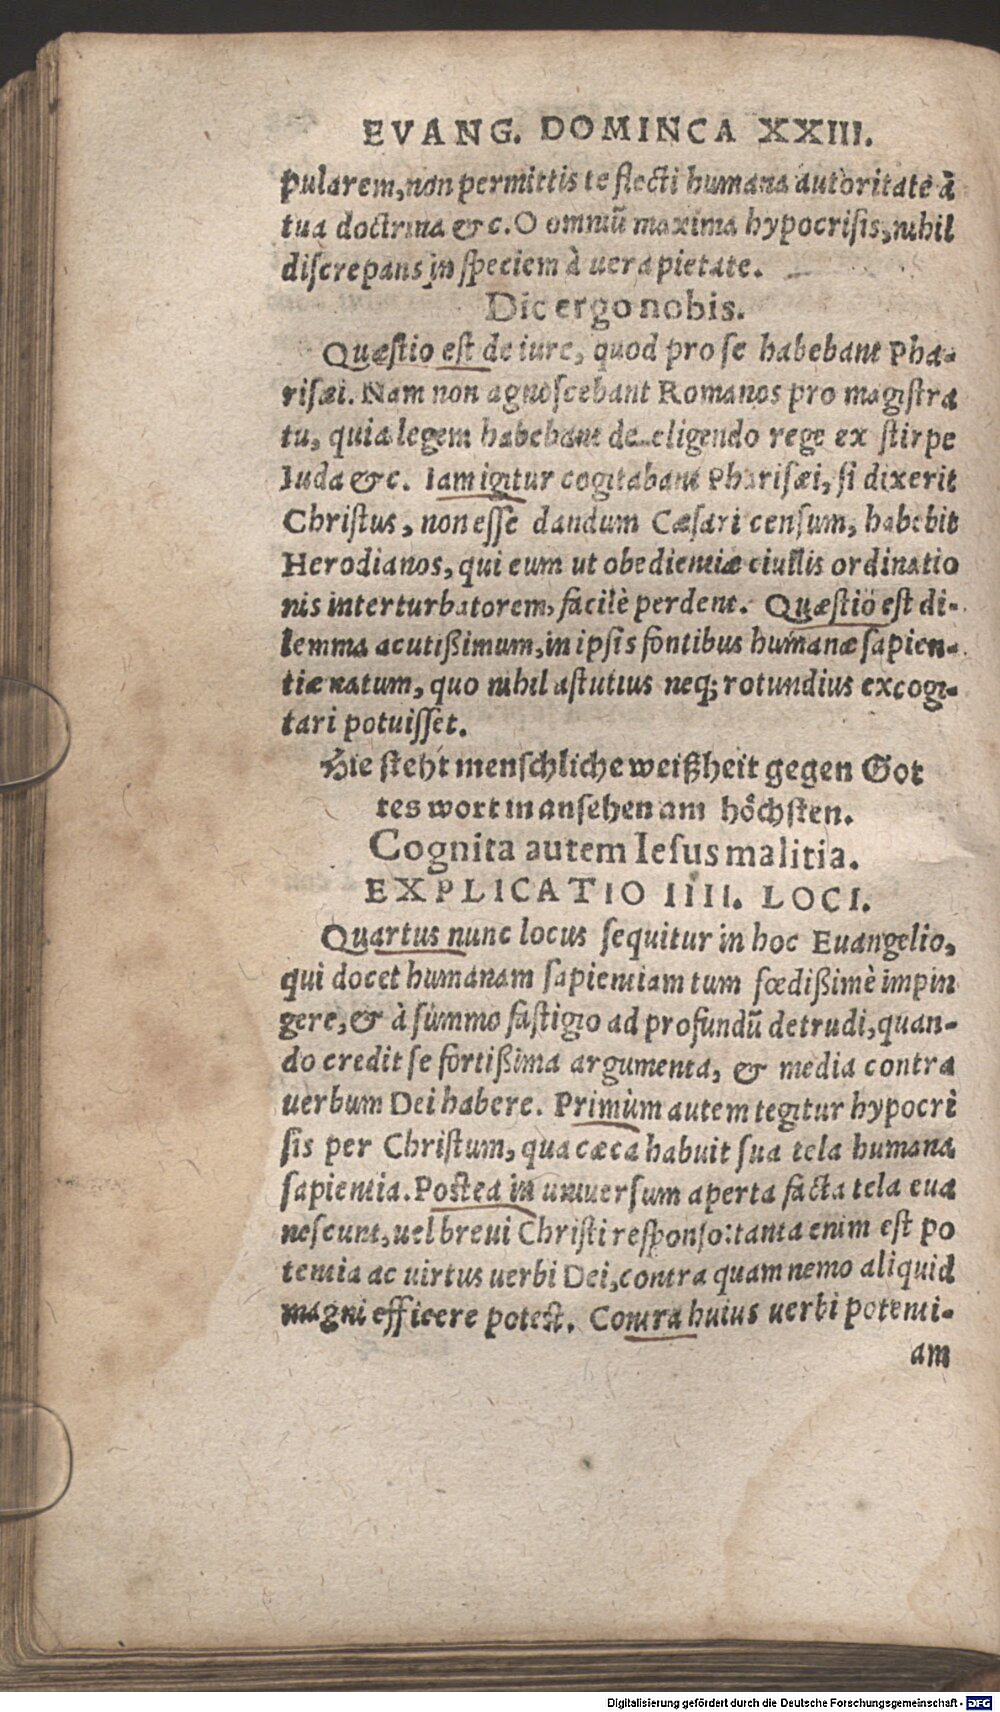 EVANG. DOMINCA XXIII.
pularem, non permittis te flecti humana autoritate à
tua doctrina &c. O omniũ maxima hypocrisis, nihil
discrepans in speciem à uera pietate.
Dic ergo nobis.
Quæstio est de iure, quod pro se habebant Pha-
risæi. Nam non agnoscebant Romanos pro magistra
tu, quia legem habebant de eligendo rege ex stirpe
Iuda &c. Iam igitur cogitabant Pharisæi, si dixerit
Christus, non esse dandum Cæsari censum, habebit
Herodianos, qui eum ut obedientiæ ciuilis ordinatio
nis interturbatorem, facilè perdent. Quæstio est di-
lemma acutißimum, in ipsis fontibus humanæ sapien-
tiæ natum, quo nihil astutius neq; rotundius excogi-
tari potuisset.
Hie steht menschliche weißheit gegen Got
tes wort in ansehen am höchsten.
Cognita autem Iesus malitia.
EXPLICATIO IIII. LOCI.
Quartus nunc locus sequitur in hoc Euangelio,
qui docet humanam sapientiam tum fœdißimè impin
gere, & à summo fastigio ad profundũ detrudi, quan-
do credit se fortißima argumenta, & media contra
uerbum Dei habere. Primùm autem tegitur hypocri
sis per Christum, qua cæca habuit sua tela humana
sapientia. Postea in uniuersum aperta facta tela eua
nescunt, uel breui Christi responso: tanta enim est po
tentia ac uirtus uerbi Dei, contra quam nemo aliquid
magni efficere potest. Contra huius uerbi potenti-
am
Digitalisierung gefördert durch die Deutsche Forschungsgemeinschaft - DFG